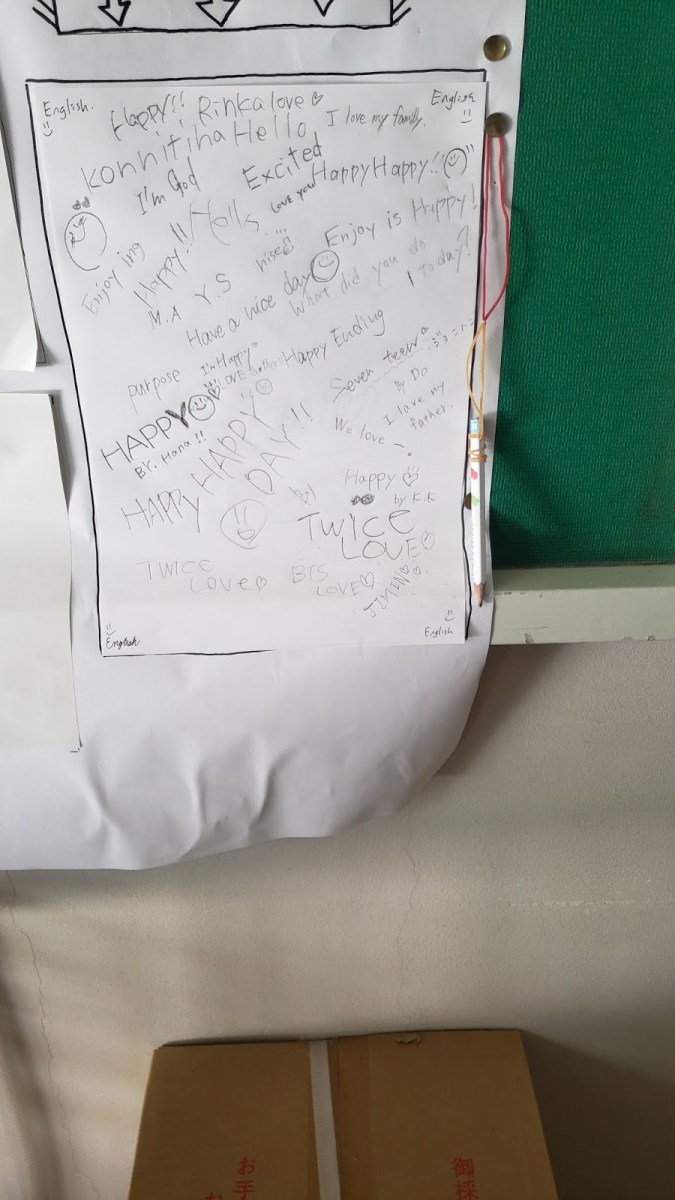 English.
English
Happy!! Rinka love
I love my family.
Konnitiha Hello
I'm God
Excited
Love you!
Happy Happy!!
Hello
Enjoy ing
Happy!!
nise
Enjoy is Happy!
M.A Y.S
Have a nice day
What did you do today?
purpose
I'm Happy
LOVE
Happy Ending
Seven teen
By Do
HAPPY
BY. Hana!!
HAPPY HAPPY DAY!!
by
We love
I love my father.
Happy
by K.K
TWICE
LOVE
TWICE
LOVE
BTS
LOVE
JIMIN
English
English
お手
な
御採